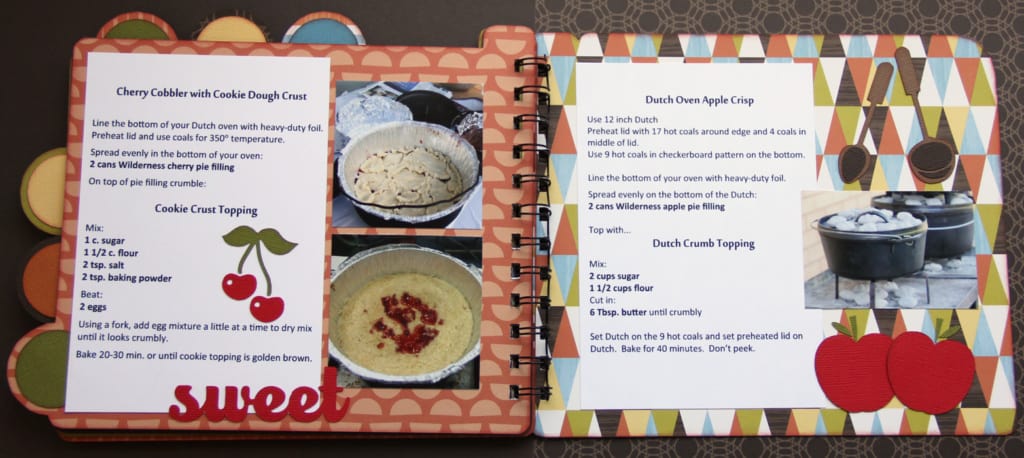 Cherry Cobbler with Cookie Dough Crust
Line the bottom of your Dutch oven with heavy-duty foil.
Preheat lid and use coals for 350° temperature.
Spread evenly in the bottom of your oven:
2 cans Wilderness cherry pie filling
On top of pie filling crumble:
Cookie Crust Topping
Mix:
1 c. sugar
1 1/2 c. flour
2 tsp. salt
2 tsp. baking powder
Beat:
2 eggs
Using a fork, add egg mixture a little at a time to dry mix
until it looks crumbly.
Bake 20-30 min. or until cookie topping is golden brown.
sweet
Dutch Oven Apple Crisp
Use 12 inch Dutch
Preheat lid with 17 hot coals around edge and 4 coals in
middle of lid.
Use 9 hot coals in checkerboard pattern on the bottom.
Line the bottom of your oven with heavy-duty foil.
Spread evenly on the bottom of the Dutch:
2 cans Wilderness apple pie filling
Top with...
Dutch Crumb Topping
Mix:
2 cups sugar
1 1/2 cups flour
Cut in:
6 Tbsp. butter until crumbly
Set Dutch on the 9 hot coals and set preheated lid on
Dutch. Bake for 40 minutes. Don't peek.